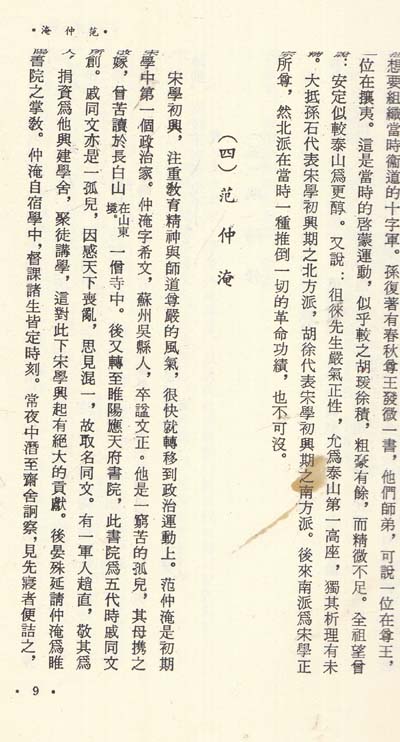 范仲淹
想要組織當時衞道的十字軍。孫復著有春秋尊王發微一書,他們師弟,可說一位在尊王,
一位在攘夷。這是當時的啓蒙運動,似乎較之胡瑗徐積,粗豪有餘,而精微不足。全祖望曾
:安定似較泰山爲更醇。又說:徂徠先生嚴氣正性,允爲泰山第一高座,獨其析理有未
。大抵孫石代表宋學初興期之北方派,胡徐代表宋學初興期之南方派。後來南派爲宋學正
所尊,然北派在當時一種推倒一切的革命功績,也不可沒。
(四)范仲淹
宋學初興,注重敎育精神與師道尊嚴的風氣,很快就轉移到政治運動上。范仲淹是初期
學中第一個政治家。仲淹字希文,蘇州吳縣人,卒諡文正。他是一窮苦的孤兒,其母携之
嫁,曾苦讀於長白山在山東境。一僧寺中。後又轉至睢陽應天府書院,此書院爲五代時戚同文
創。戚同文亦是一孤兒,因感天下喪亂,思見混一,故取名同文。有一軍人趙直,敬其爲
人,捐資爲他興建學舍,聚徒講學,這對此下宋學興起有絕大的貢獻。後晏殊延請仲淹爲睢
書院之掌敎。仲淹自宿學中,督課諸生皆定時刻。常夜中潛至齋舍詗察,見先寢者便詰之,
• 9 •